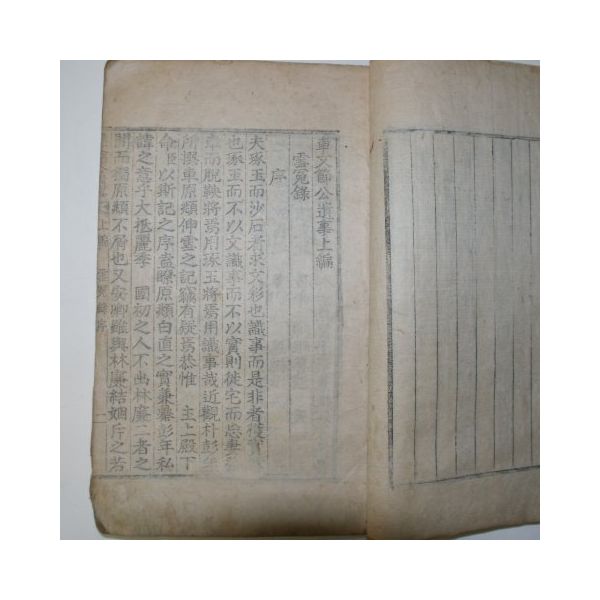 車文節公遺事上編
雪冤錄
序
夫琢玉而沙石者求文彩也識事而是非者獲實
也琢玉而不以文識事而不以實則徙宅而忘妻
章而脫鞅將焉用琢玉將焉用識事哉近觀朴彭年
所撰車原頫伸雪之記竊有疑焉恭惟 主上殿下
命臣以斯記之序盖瞭原頫白直之實兼彙彭年私
諱之意乎大抵麗季 國初之人不出林廉二者之
間而獨原頫不屑也又安卿雖與林廉結姻斥之若